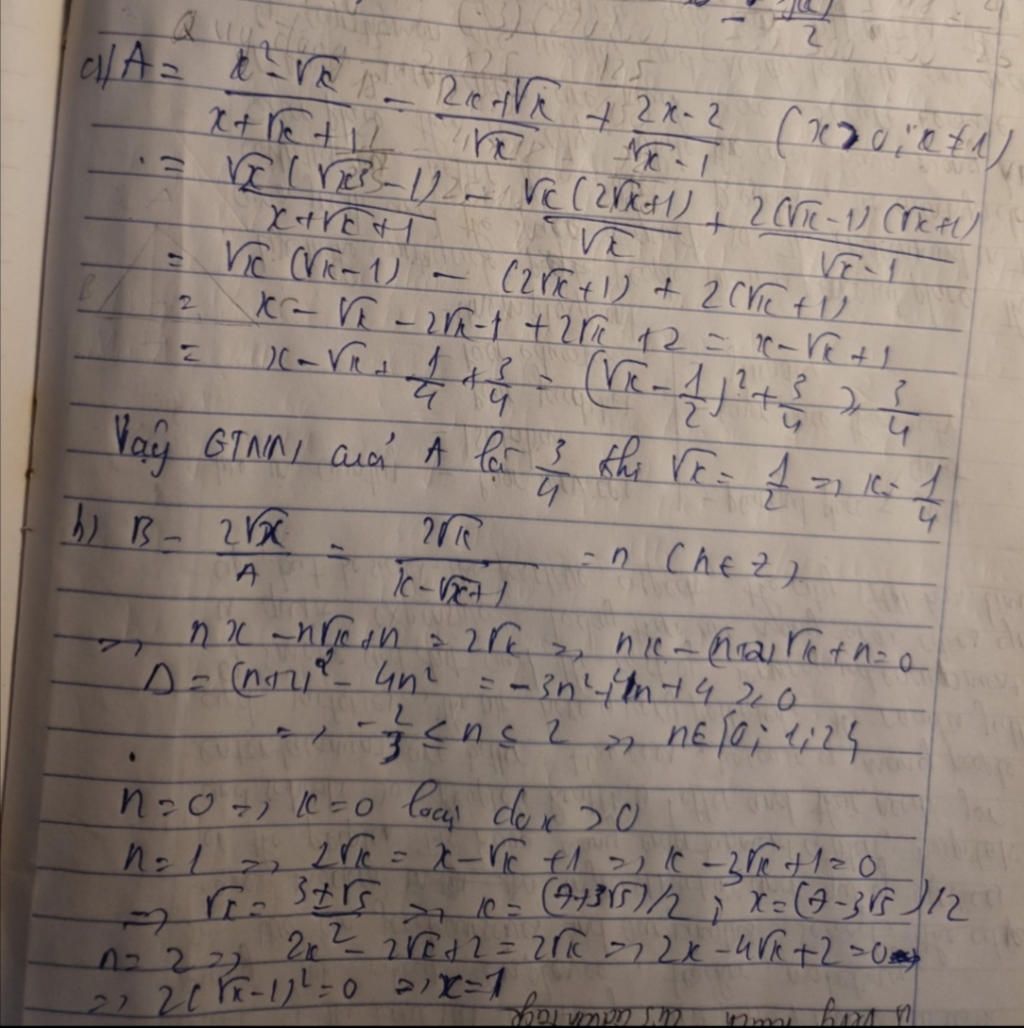 a) A = (x² - √x)/(x + √x + 1) - (2x + √x)/√x + (2x - 2)/(√x - 1) (x > 0; x ≠ 1)
= √x(√x³ - 1)/(x + √x + 1) - √x(2√x + 1)/√x + 2(√x - 1)(√x + 1)/(√x - 1)
= √x(√x - 1) - (2√x + 1) + 2(√x + 1)
= x - √x - 2√x - 1 + 2√x + 2 = x - √x + 1
= x - √x + 1/4 + 3/4 = (√x - 1/2)² + 3/4 ≥ 3/4
Vậy GTNN của A là 3/4 khi √x = 1/2 => x = 1/4
b) B = 2√x/A = 2√x/(x - √x + 1) = n (n ∈ Z)
=> nx - n√x + n = 2√x => nx - (n+2)√x + n = 0
Δ = (n+2)² - 4n² = -3n² + 4n + 4 ≥ 0
=> -2/3 ≤ n ≤ 2 => n ∈ {0; 1; 2}
n = 0 => x = 0 loại do x > 0
n = 1 => 2√x = x - √x + 1 => x - 3√x + 1 = 0
=> √x = (3 ± √5)/2 => x = (7+3√5)/2; x = (7-3√5)/2
n = 2 => 2x² - 2√x + 2 = 2√x => 2x - 4√x + 2 = 0
=> 2(√x - 1)² = 0 => x = 1